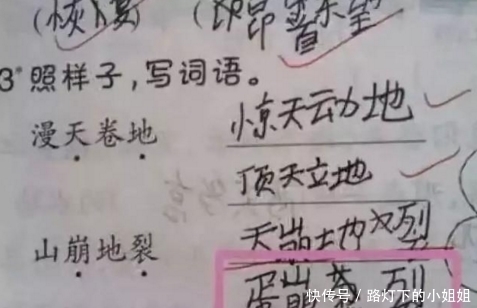 (恢复)
3 照样子,写词语。
漫天卷地 惊天动地
顶天立地
山崩地裂 天崩地裂
快传号 / 路灯下的小姐姐